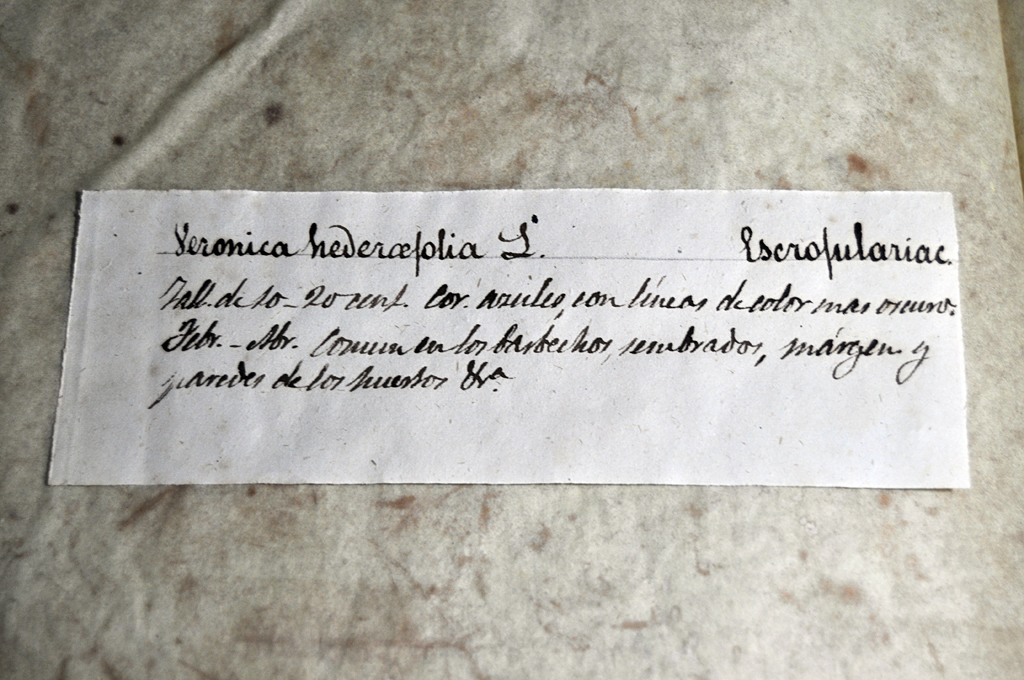 Veronica hederæfolia L. Escrofulariac.
Tall. de 10-20 cent. Cor. azules, con líneas de color mas oscuro.
Febr.-Abr. Comun en los barbechos, sembrados, márgen. y
paredes de los huertos &ra